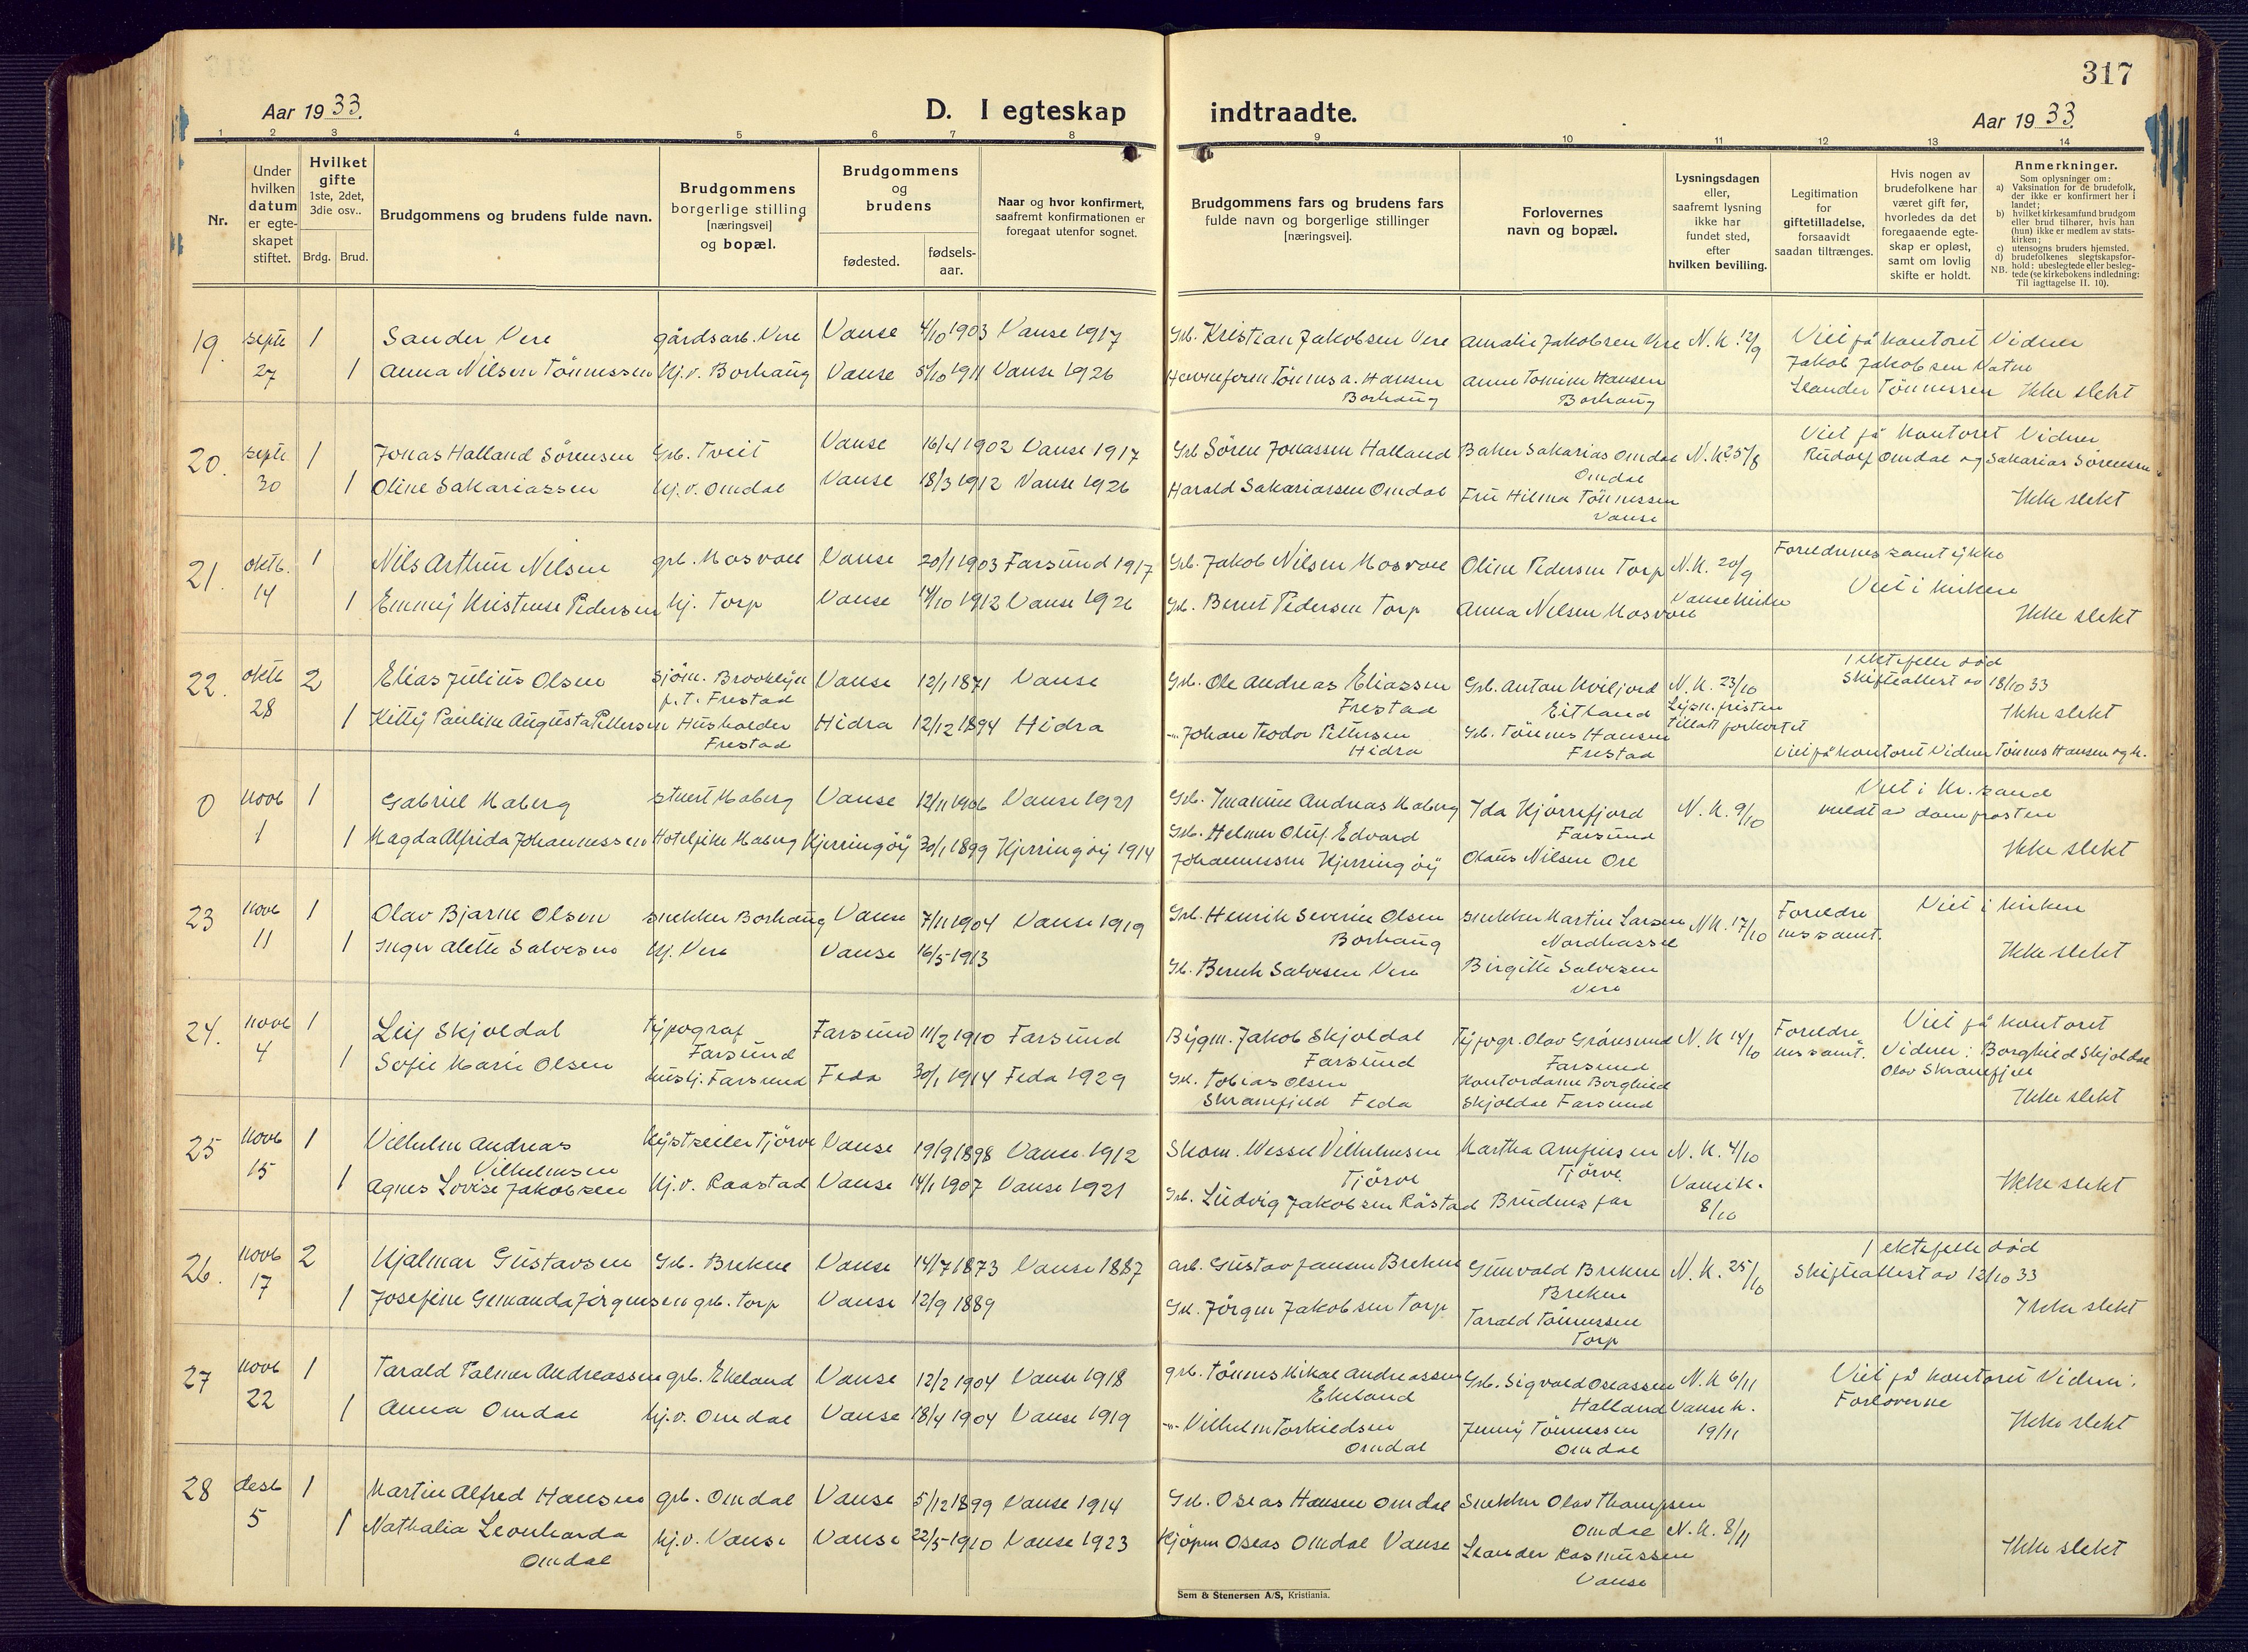 317
Aar 1933.
D. I egteskap indtraadte.
Aar 1933.
1 2 3 4 5 6 7 8 9 10 11 12 13 14
Nr.
Under hvilken datum er egte- skapet stiftet.
Hvilket gifte 1ste, 2det, 3die osv..
Brdg. Brud.
Brudgommens og brudens fulde navn.
Brudgommens borgerlige stilling [næringsvei] og bopæl.
Brudgommens og brudens
fødested. fødsels- aar.
Naar og hvor konfirmert, saafremt konfirmationen er foregaat utenfor sognet.
Brudgommens fars og brudens fars fulde navn og borgerlige stillinger [næringsvei].
Forlovernes navn og bopæl.
Lysningsdagen eller, saafremt lysning ikke har fundet sted, efter hvilken bevilling.
Legitimation for giftetilladelse, forsaavidt saadan tiltrænges.
Hvis nogen av brudefolkene har været gift før, hvorledes da det foregaaende egte- skap er opløst, samt om lovlig skifte er holdt.
Anmerkninger.
Som oplysninger om:
a) Vaksination for de brudefolk, der ikke er konfirmert her i landet;
b) hvilket kirkesamfund brudgom eller brud tilhører, hvis han (hun) ikke er medlem av stats- kirken;
c) utensogns bruders hjemsted.
d) brudefolkenes slegtskapsfor- hold: ubeslegtede eller besleg- tede (se kirkebokens indledning: Til iagttagelse II. 10).
NB.
19. septe 27 1 Sander Vere gårdsarb. Vere Vanse 4/10 1903 Vanse 1917 Grb. Kristian Jakobsen Vere Amalie Jakobsen Vere N.K. 12/9 Viet på kontoret Vidner
Jakob Jakobsen Vatne
1 Anna Nilsen Tönnessen hj.v. Borhaug Vanse 5/10 1911 Vanse 1926 Tönnes A. Hansen Borhaug Anne Tomine Hansen Borhaug Leander Tönnessen Ikke slekt
20. septe 30 1 Jonas Halland Sörensen Grb. Tveit Vanse 16/4 1902 Vanse 1917 Grb Sören Jonassen Halland Baker Sakarias Omdal Omdal N.K 25/8 Viet på kontoret Vidner
Rudolf Omdal og Sakarias Sörensen
1 Oline Sakariassen hj.v. Omdal Vanse 18/3 1912 Vanse 1926 Harald Sakariassen Omdal Fru Hilma Tönnessen Vanse Ikke slekt
21. oktb. 14 1 Nils Arthur Nilsen grb. Mosvoll Vanse 20/1 1903 Farsund 1917 Grb. Jakob Nilsen Mosvoll Oline Pedersen Torp N.K. 20/9 Foreldrenes samtykke
Viet i kirken
1 Emmy Kristense Pedersen hj. Torp Vanse 14/10 1912 Vanse 1926 Grb. Bernt Pedersen Torp Anna Nilsen Mosvoll Vanse kirke Ikke slekt
22. oktb 28 2 Elias Julius Olsen Sjöm. Brooklyn p.t. Frestad Vanse 12/1 1871 Vanse Grb. Ole Andreas Eliassen Frestad Grb. Anton Kviljord Eitland N.K. 23/10 1 ektefelle död
Skifteattest av 18/10 33
Lysn. fristen tillatt forkortet Ikke slekt
1 Kitty Pauline Augusta Pettersen Husholder Frestad Hidra 12/12 1894 Hidra Johan Teodor Pettersen Hidra Grb. Tönnes Hansen Frestad Viet på kontoret Vidner Tönnes Hansen og k.
0 novb 1 1 Gabriel Maberg stuert Maberg Vanse 12/11 1906 Vanse 1921 Grb. Imanuel Andreas Maberg Ida Kjörrefjord Farsund N.K. 9/10 Viet i Kr.sand
meldt av domprosten
1 Magda Alfrida Johannessen Hotelpike Maberg Kjerringöy 30/1 1899 Kjerringöy 1914 Grb. Helmer Oluf Edvard Johannessen Kjerringöy Olaus Nilsen Ore Ikke slekt
23 novb 11 1 Olav Bjarne Olsen snekker Borhaug Vanse 7/11 1904 Vanse 1919 Grb. Henrik Severin Olsen Borhaug snekker Martin Larsen Nordhassel NK. 17/10 Foreldrenes samt. Viet i kirken
1 Inger Alette Salvesen hj. Vere Vanse 16/5 1913 Gb. Berent Salvesen Vere Birgitte Salvesen Vere Ikke slekt
24. novb 4 1 Leif Skjoldal Typograf Farsund Farsund 11/2 1910 Farsund Bygm. Jakob Skjoldal Farsund Typogr. Olav Grönsund Farsund N.K 14/10 Foreldrenes samt. Viet på kontoret
Vidner: Borghild Skjoldal
Olav Skranefjell
1 Sofie Marie Olsen hushj. Farsund Feda 30/1 1914 Feda 1929 Gb. Tobias Olsen Skranefjeld Feda Kontordame Borghild Skjoldal Farsund Ikke slekt
25 novb 15 1 Vilhelm Andreas Vilhelmsen kystseiler Tjörve Vanse 19/9 1898 Vanse 1912 Skom. Wessel Vilhelmsen Tjörve Martha Arnfinsen Tjörve N.K. 4/10
1 Agnes Lovise Jakobsen hj.v. Raastad Vanse 14/1 1907 Vanse 1921 Grb. Ludvig Jakobsen Råstad Brudens far Vansek. 8/10 Ikke slekt
26. novb 17 2 Hjalmar Gustavsen Grb. Brekne Vanse 14/7 1873 Vanse 1887 arb. Gustav Jansen Brekne Gunvald Brekne Brekne N.K. 25/10 1 ektefelle död
Skifteattest av 12/10 33
1 Josefine Gemanda Jörgensen grb. Torp Vanse 12/9 1889 Gb. Jörgen Jakobsen Torp Tarald Tönnessen Torp Ikke slekt
27 novb 22 1 Tarald Palmer Andreassen grb. Ekeland Vanse 12/2 1904 Vanse 1918 grb. Tönnes Mikal Andreassen Ekeland Grb. Sigvald Oseassen Halland N.K 6/11 Viet på kontoret Vidner:
Forloverne
1 Anna Omdal hj.v. Omdal Vanse 18/4 1904 Vanse 1919 -"- Vilhelm Torkildsen Omdal Jenny Tönnessen Omdal Vanse k. 19/11 Ikke slekt
28 desb 5 1 Martin Alfred Hansen grb. Omdal Vanse 5/12 1899 Vanse 1914 Grb. Oseas Hansen Omdal Snekker Olav Thompsen Omdal N.K. 8/11
1 Nathalia Leonharda Omdal hj.v. Vanse Vanse 22/5 1910 Vanse 1923 Kjöpm Oseas Omdal Vanse Leander Rasmussen Vanse Ikke slekt
Sem & Stenersen A/S, Kristiania.